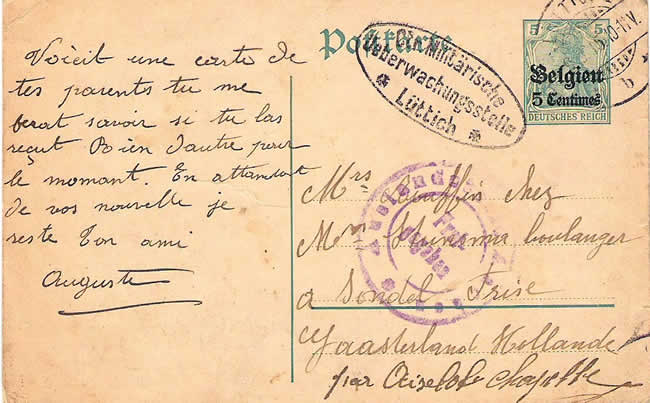 Postkarte
Der Ein Militärische
Ueberwachungsstelle
Lüttich
5 5
Belgien
5 Centimes
DEUTSCHES REICH
b
Voicit une carte de
tes parents tu me
ferat savoir si tu las
reçut Rien d'autre pour
le momant. En attendant
de vos nouvelle je
reste ton ami
Auguste
Mrs chez
Mr boulanger
a Sondel Frise
Gaasterland Hollande
par Chapelle
Auslands